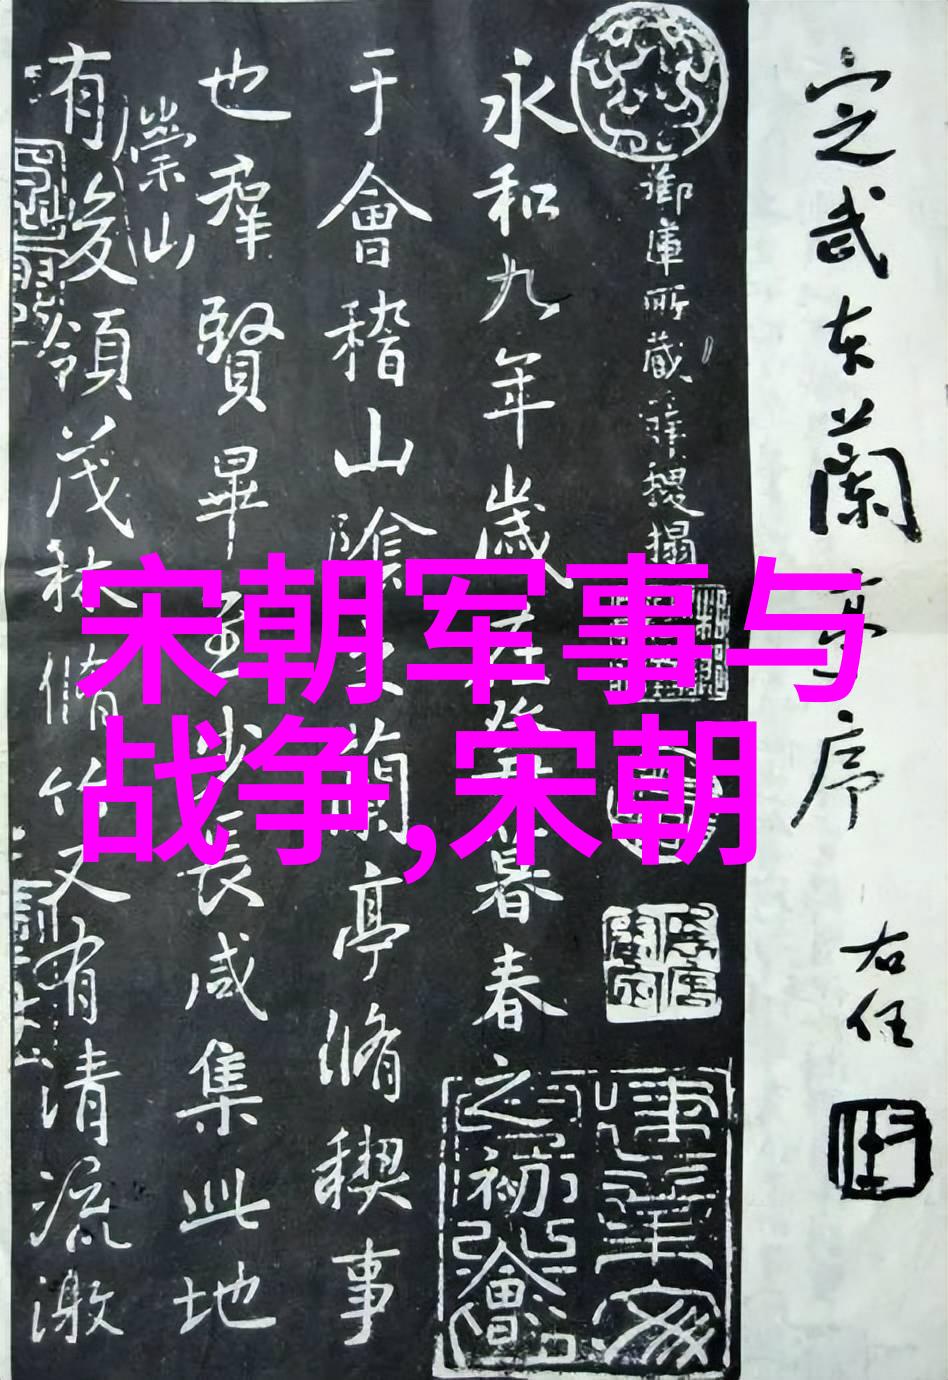 定武本蘭亭序
右任
御庫所藏禊搨
永和九年歲在癸丑暮春之初會
于會稽山陰之蘭亭脩稧事
也羣賢畢至少長咸集此地
崇山
有峻領茂林脩竹又有清流激
宋朝军事与
战争,宋朝